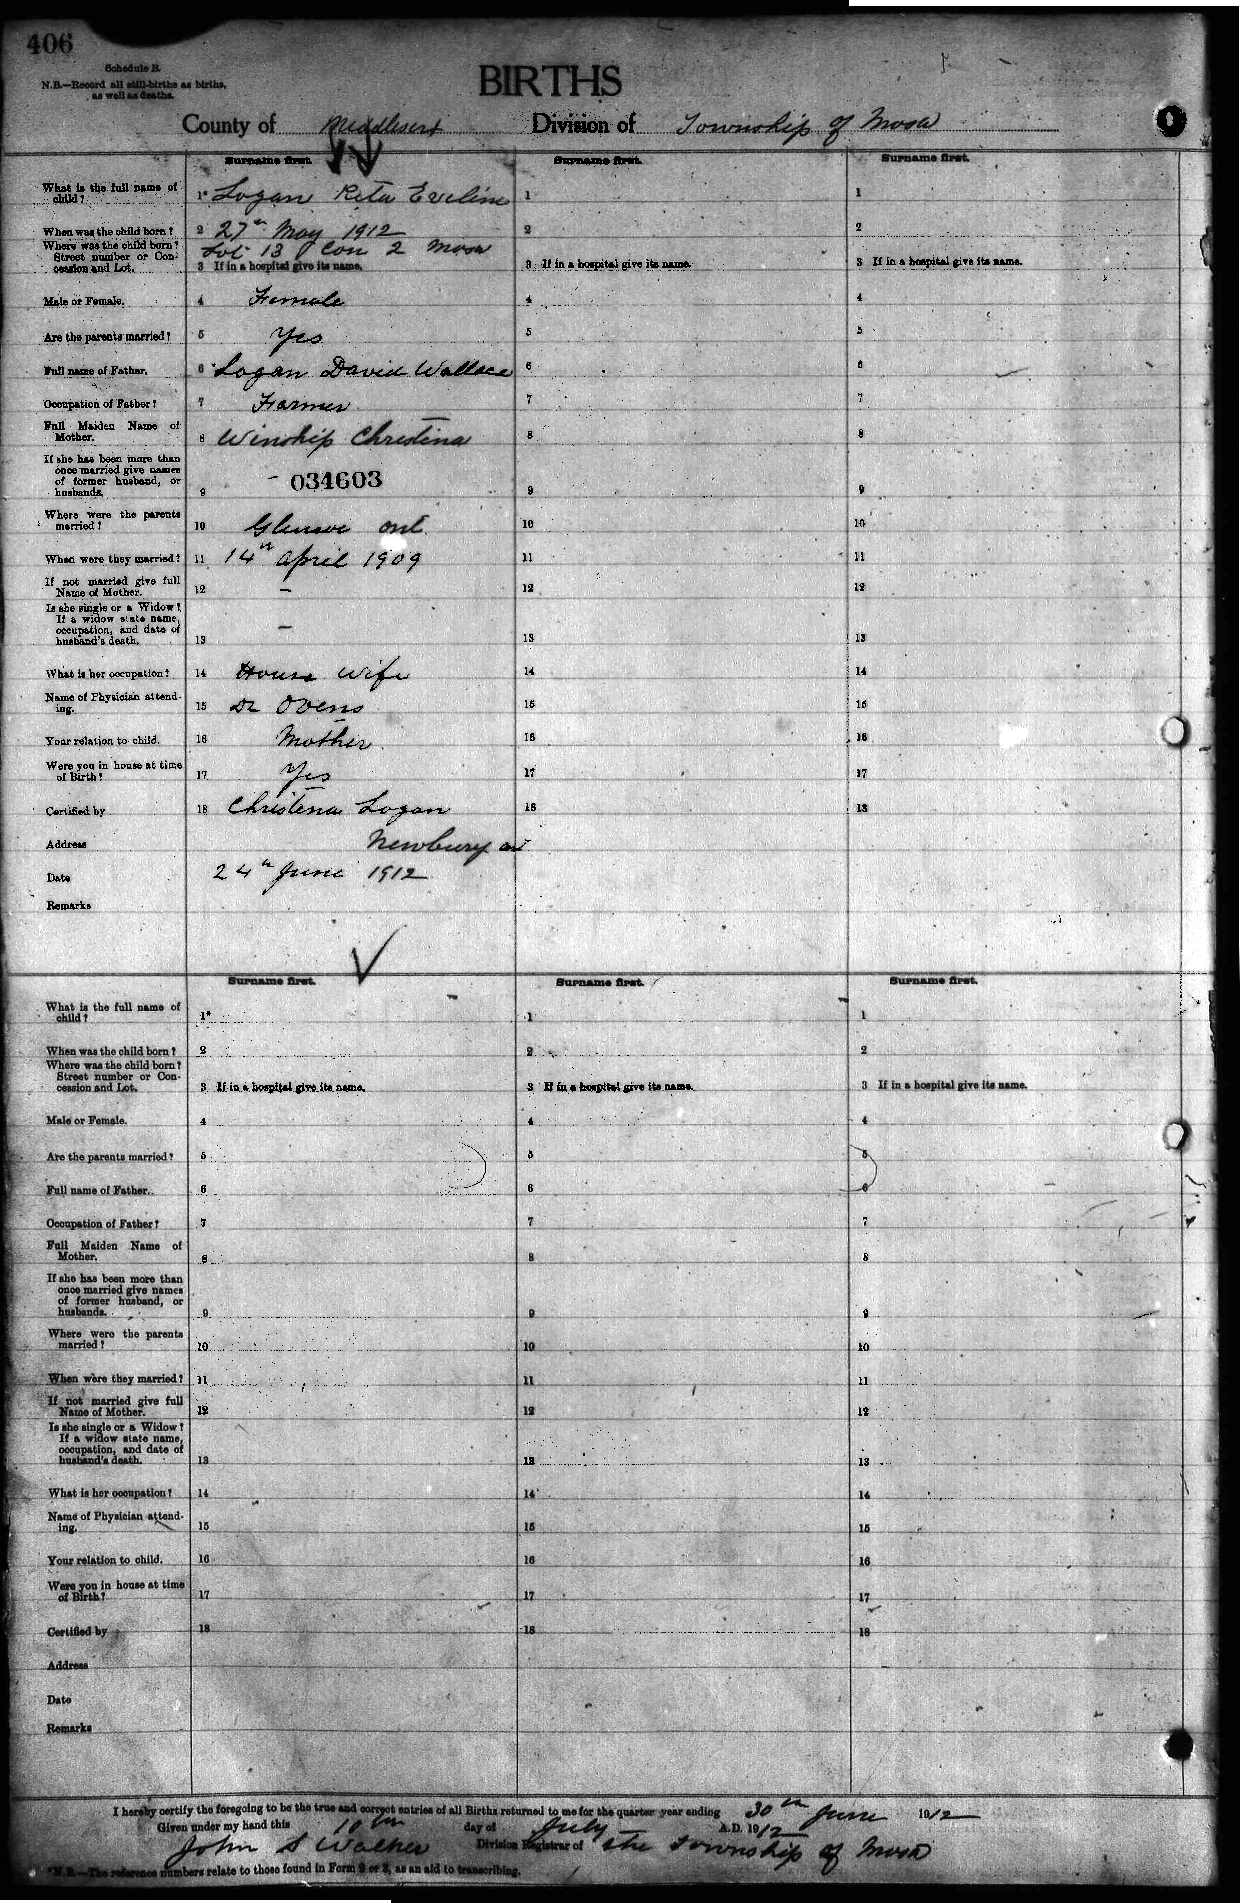 406
Schedule B.
N.B.—Record all still-births as births, as well as deaths.
BIRTHS
County of Middlesex Division of Township of Mosa
Surname first. Surname first. Surname first.
What is the full name of child? 1* Logan Reta Eveline 1 1
When was the child born? 2 27th May 1912 2 2
Where was the child born? Street number or Concession and Lot. Lot 13 Con 2 Mosa
3 If in a hospital give its name. 3 If in a hospital give its name. 3 If in a hospital give its name.
Male or Female. 4 Female 4 4
Are the parents married? 5 Yes 5 5
Full name of Father. 6 Logan David Wallace 6 6
Occupation of Father? 7 Farmer 7 7
Full Maiden Name of Mother. 8 Winship Christina 8 8
If she has been more than once married give names of former husband, or husbands. 9 - 034603 9 9
Where were the parents married? 10 Glencoe Ont 10 10
When were they married? 11 14th April 1909 11 11
If not married give full Name of Mother. 12 - 12 12
Is she single or a Widow? If a widow state name, occupation, and date of husband's death. 13 - 13 13
What is her occupation? 14 House wife 14 14
Name of Physician attending. 15 Dr Ovens 15 15
Your relation to child. 16 Mother 16 16
Were you in house at time of Birth? 17 Yes 17 17
Certified by 18 Christena Logan 18 18
Address Newbury Ont
Date 24th June 1912
Remarks
Surname first. Surname first. Surname first.
What is the full name of child? 1* 1 1
When was the child born? 2 2 2
Where was the child born? Street number or Concession and Lot. 3 If in a hospital give its name. 3 If in a hospital give its name. 3 If in a hospital give its name.
Male or Female. 4 4 4
Are the parents married? 5 5 5
Full name of Father. 6 6 6
Occupation of Father? 7 7 7
Full Maiden Name of Mother. 8 8 8
If she has been more than once married give names of former husband, or husbands. 9 9 9
Where were the parents married? 10 10 10
When were they married? 11 11 11
If not married give full Name of Mother. 12 12 12
Is she single or a Widow? If a widow state name, occupation, and date of husband's death. 13 13 13
What is her occupation? 14 14 14
Name of Physician attending. 15 15 15
Your relation to child. 16 16 16
Were you in house at time of Birth? 17 17 17
Certified by 18 18 18
Address
Date
Remarks
I hereby certify the foregoing to be the true and correct entries of all Births returned to me for the quarter year ending 30th June 1912
Given under my hand this 10th day of July A.D. 1912
John S Walker Division Registrar of the Township of Mosa
*N.B.—The reference numbers relate to those found in Form 2 or 3, as an aid to transcribing.